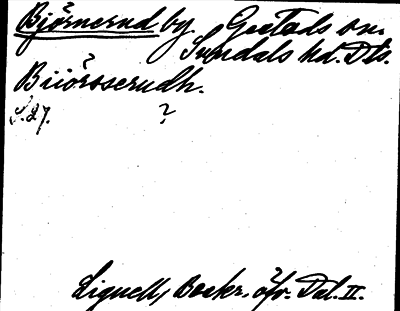 Björnerud by Gestads sn.
Sundals hd. Dls.
Biiörsserudh.
S. 27. ?
Lignell, Beskr. öfv. Dal. II.